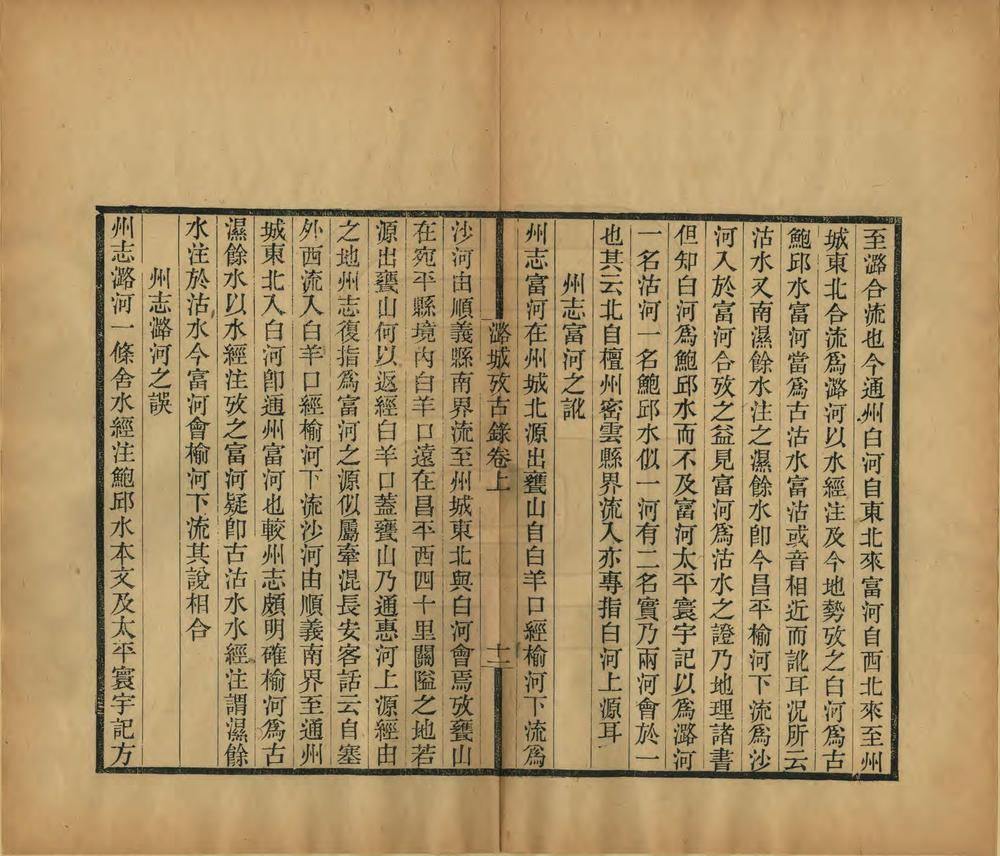 至潞合流也今通州白河自東北來富河自西北來至州
城東北合流爲潞河以水經注及今地勢攷之白河爲古
鮑邱水富河當爲古沽水富沽或音相近而訛耳況所云
沽水又南濕餘水注之濕餘水卽今昌平榆河下流爲沙
河入於富河合攷之益見富河爲沽水之證乃地理諸書
但知白河爲鮑邱水而不及富河太平寰宇記以爲潞河
一名沽河一名鮑邱水似一河有二名實乃兩河會於一
也其云北自檀州密雲縣界流入亦專指白河上源耳
州志富河之訛
州志富河在州城北源出甕山自白羊口經榆河下流爲
潞城攷古錄卷上
十二
沙河由順義縣南界流至州城東北與白河會焉攷甕山
在宛平縣境內白羊口遠在昌平西四十里關隘之地若
源出甕山何以返經白羊口蓋甕山乃通惠河上源經由
之地州志復指爲富河之源似屬牽混長安客話云自塞
外西流入白羊口經榆河下流沙河由順義南界至通州
城東北入白河卽通州富河也較州志頗明確榆河爲古
濕餘水以水經注攷之富河疑卽古沽水水經注謂濕餘
水注於沽水今富河會榆河下流其說相合
州志潞河之誤
州志潞河一條舍水經注鮑邱水本文及太平寰宇記方